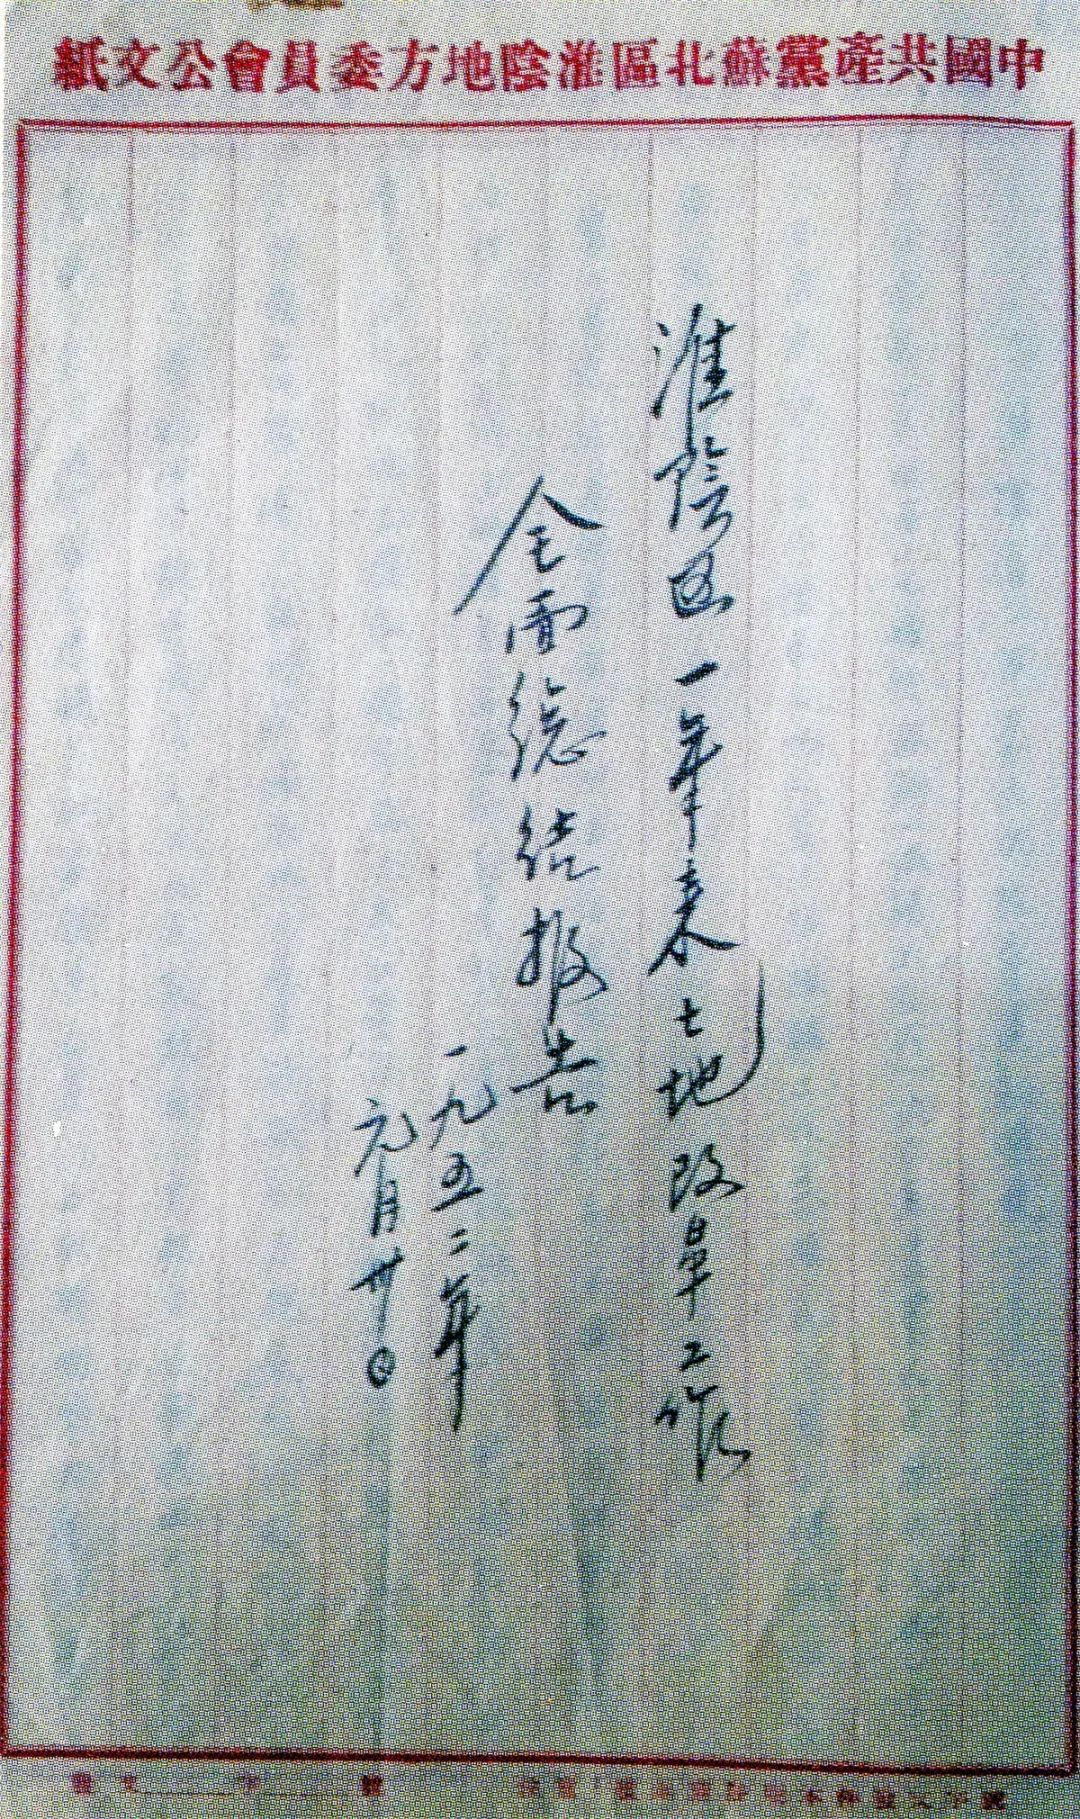 中國共產黨蘇北區淮陰地方委員會公文紙
淮陰区一年来土地改革工作
全面總结报告
一九五二年
元月卅日